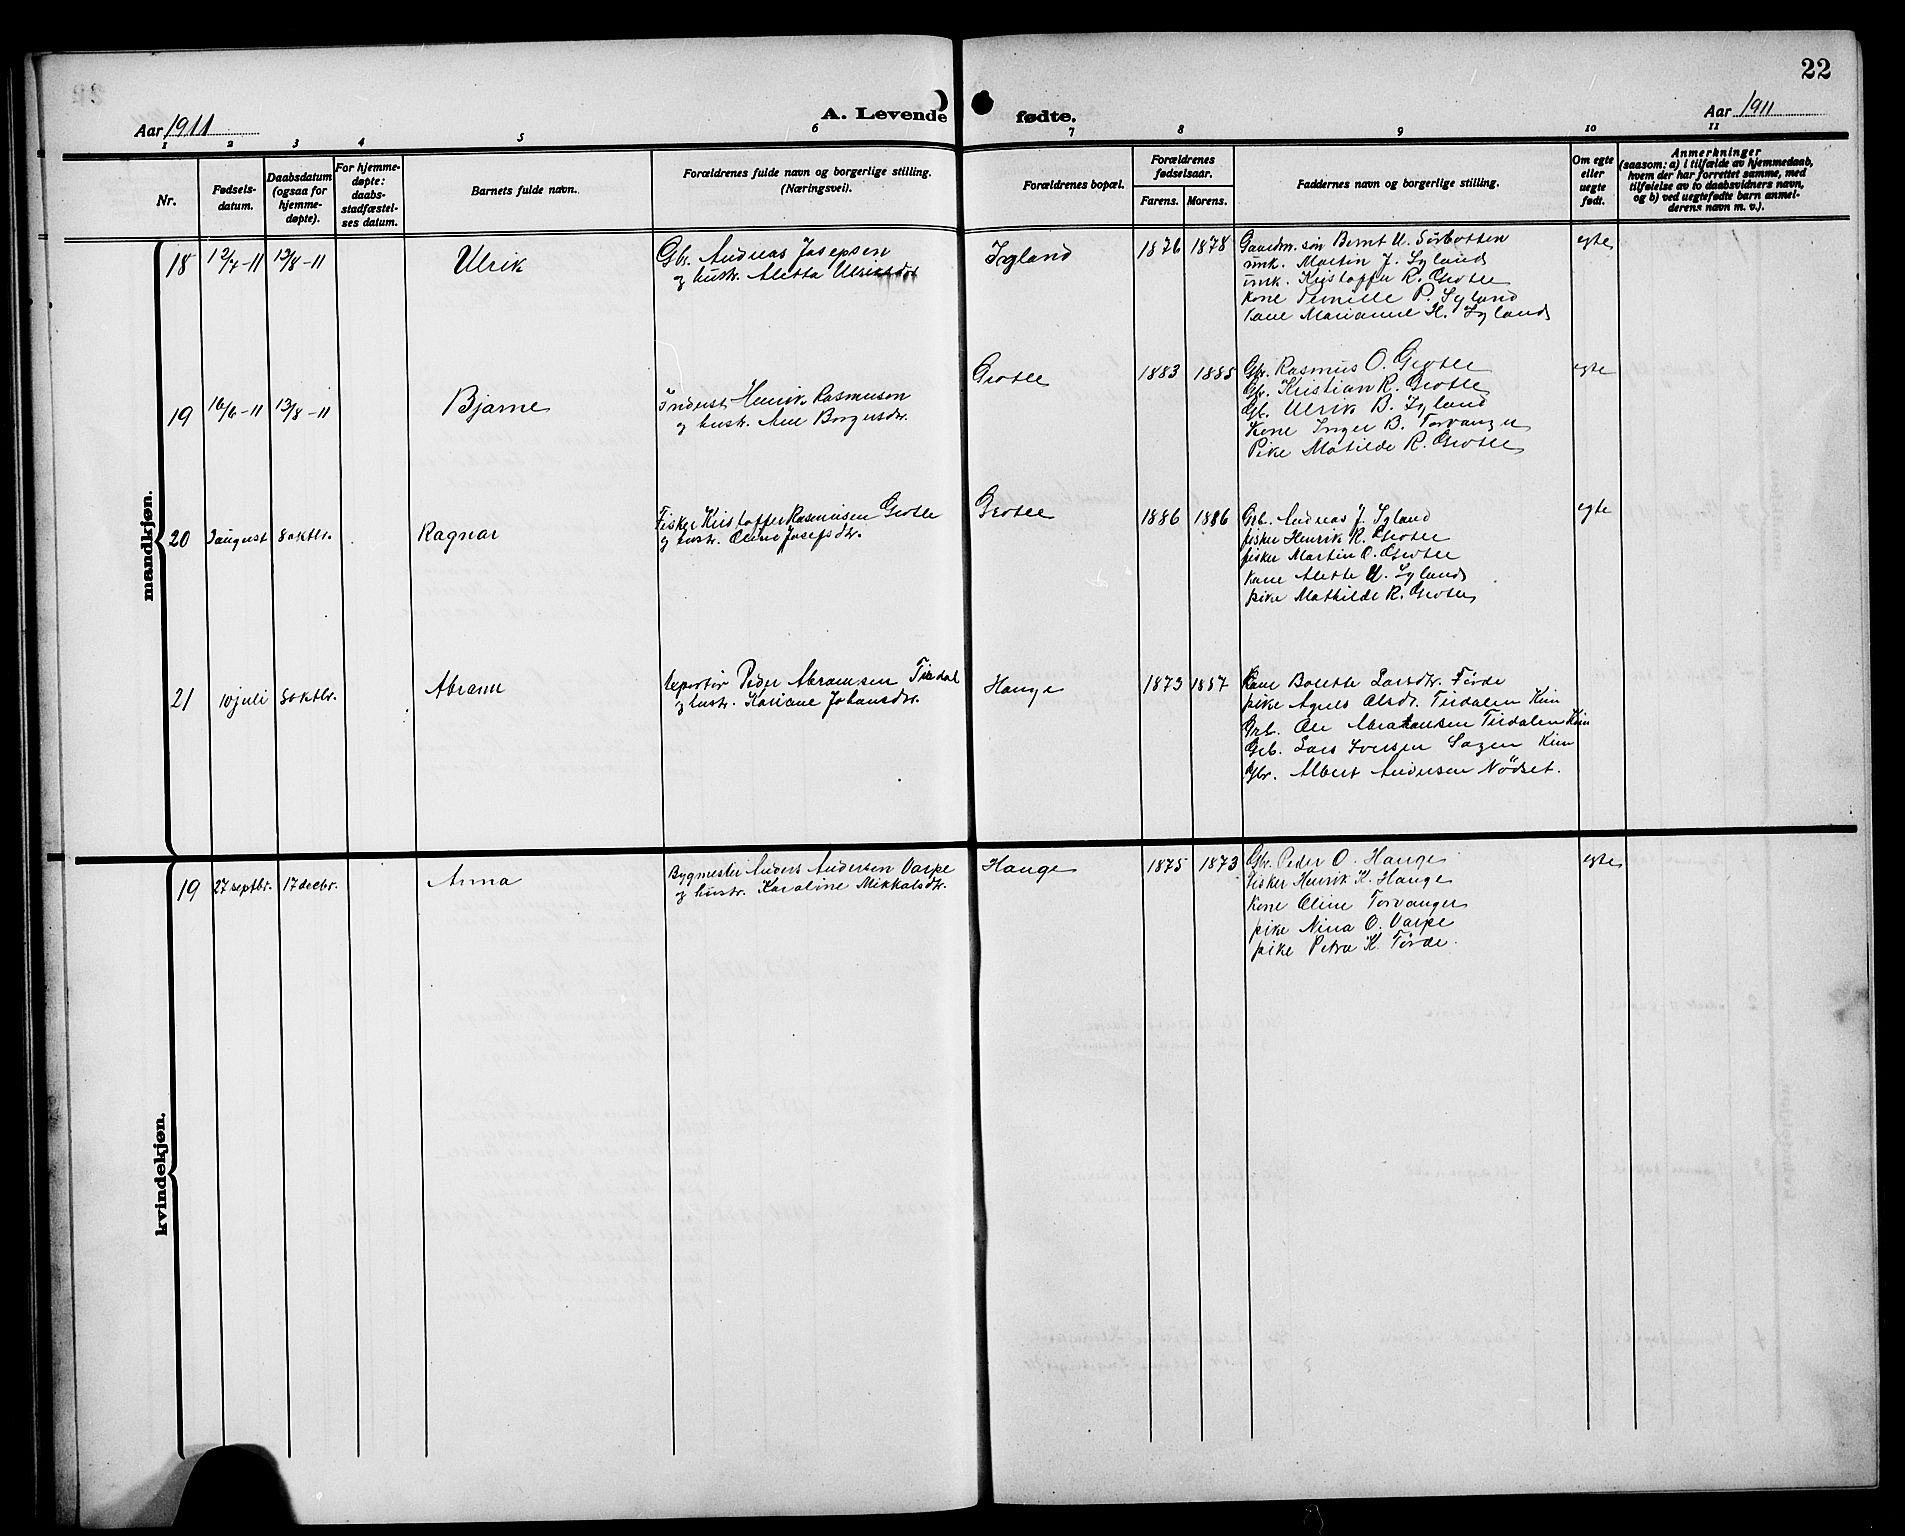 22
Aar 1911
A. Levende
fødte.
Aar 1911
1 2 3 4 5 6 7 8 9 10 11
Nr.
Fødsels-
datum.
Daabsdatum
(ogsaa for
hjemme-
døpte).
For hjemme-
døpte:
daabs-
stadfæstel-
ses datum.
Barnets fulde navn.
Forældrenes fulde navn og borgerlige stilling.
(Næringsvei).
Forældrenes bopæl.
Forældrenes
fødselsaar.
Farens. Morens.
Faddernes navn og borgerlige stilling.
Om egte
eller
uegte
født.
Anmerkninger
(saasom: a) i tilfælde av hjemmedaab,
hvem der har forrettet samme, med
tilføielse av to daabsvidners navn,
og b) ved uegtefødte barn anmel-
derens navn m. v.).
mandkjøn.
18 12/7-11 13/8-11 Ulrik
Gbr. Andreas Josepsen
og hustr. Aletta Ulriksdot
Igland 1876 1878
Gaardm. søn Bernt U. Sørbotten
unk. Martin J. Igland
unk. Kristoffer R. Grotle
kone Pernille P. Igland
kone Marianne H. Igland
egte
19 16/6-11 13/8-11 Bjarne
Inderst Henrik Rasmusen
og hustr. Ane Borgersdr.
Grotle 1883 1885
Gbr. Rasmus O. Grotle
Gbr. Kristian R. Grotle
Gb. Ulrik B. Igland
Kone Inger B. Torvanger
Pike Matilde R. Grotle
egte
20 3 august 8 oktbr. Ragnar
Fisker Kristoffer Rasmusen Grotle
og hustr. Oline Josefsdtr.
Grotle 1886 1886
Grb. Andreas J. Igland
fisker Henrik R. Grotle
fisker Martin O. Grotle
Kone Alette U. Igland
pike Mathilde R. Grotle
egte
21 10 juli 8 oktbr. Abram
Peder Abramsen
og hustr. Kariane Johansdtr.
Hauge 1873 1887
Kone Bolette Larsdtr. Førde
pike Agnes Olsdtr. Tirdalen Kinn
Grb. Ole Abrahamsen Tirdalen Kinn
Grb. Lars Iversen Kinn
Gbr. Albert Andersen Nødset.
kvindekjøn.
19 27 septbr. 17 decbr. Anna
Bygmester Anders Andersen Varpe
og hustr. Karoline Mikkalsdtr.
Hauge 1875 1873
Gbr. Peder O. Hauge
fisker Henrik K. Hauge
Kone Oline Torvanger
pike Nina O. Varpe
pike Petra K. Førde.
egte